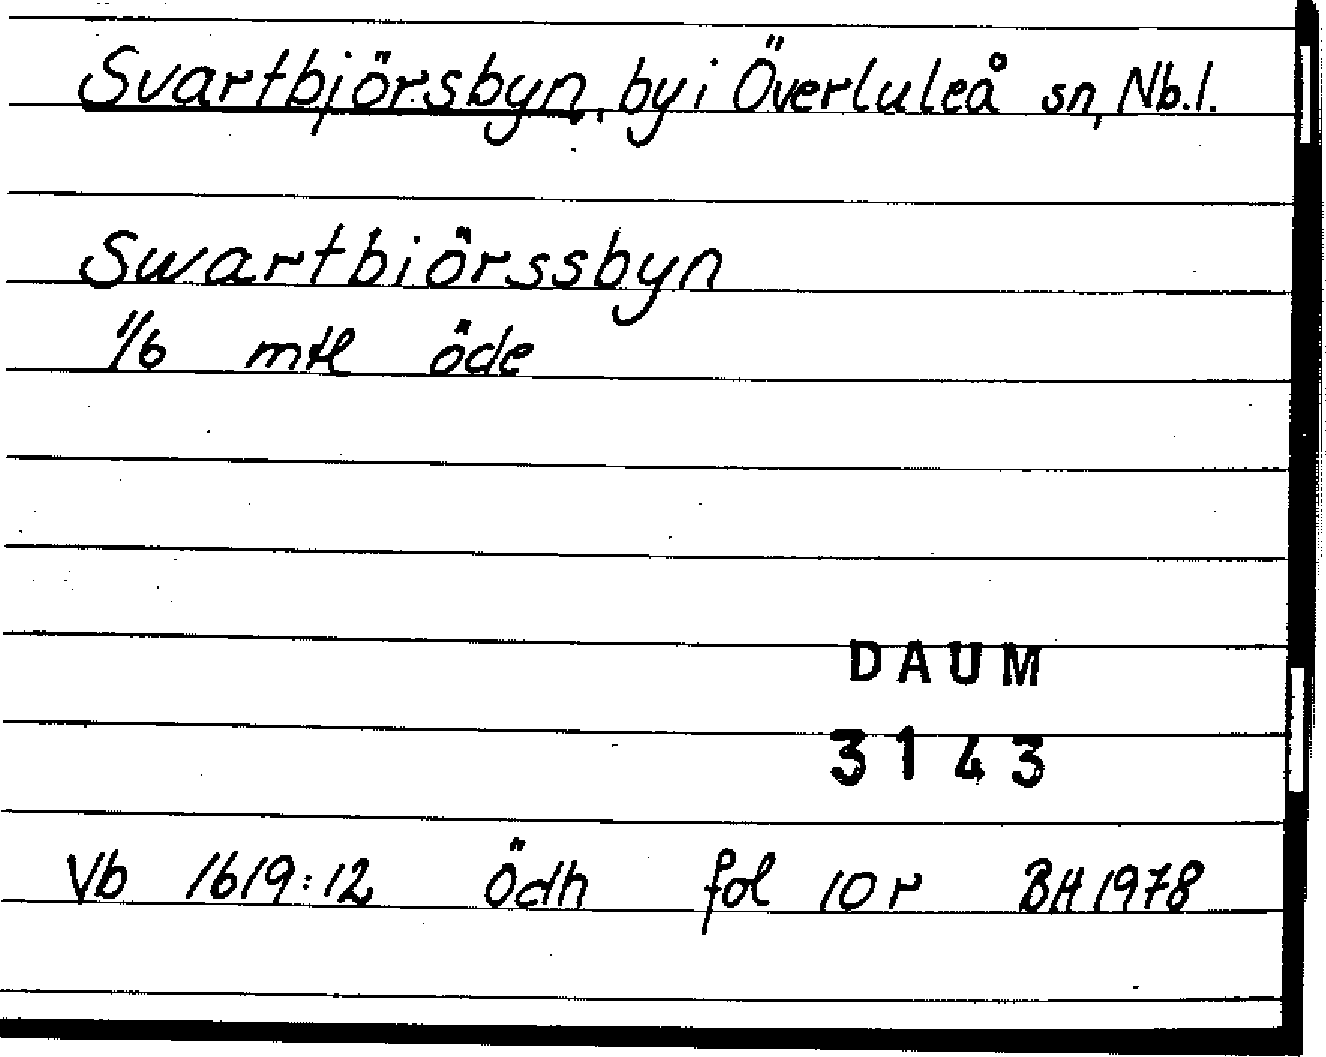 Svartbjörsbyn, by i Överluleå sn, Nb.l.
Swartbiörssbyn
1/6 mtl öde
DAUM
3143
Vb 1619:12 Ödh fol 10 r BH 1978